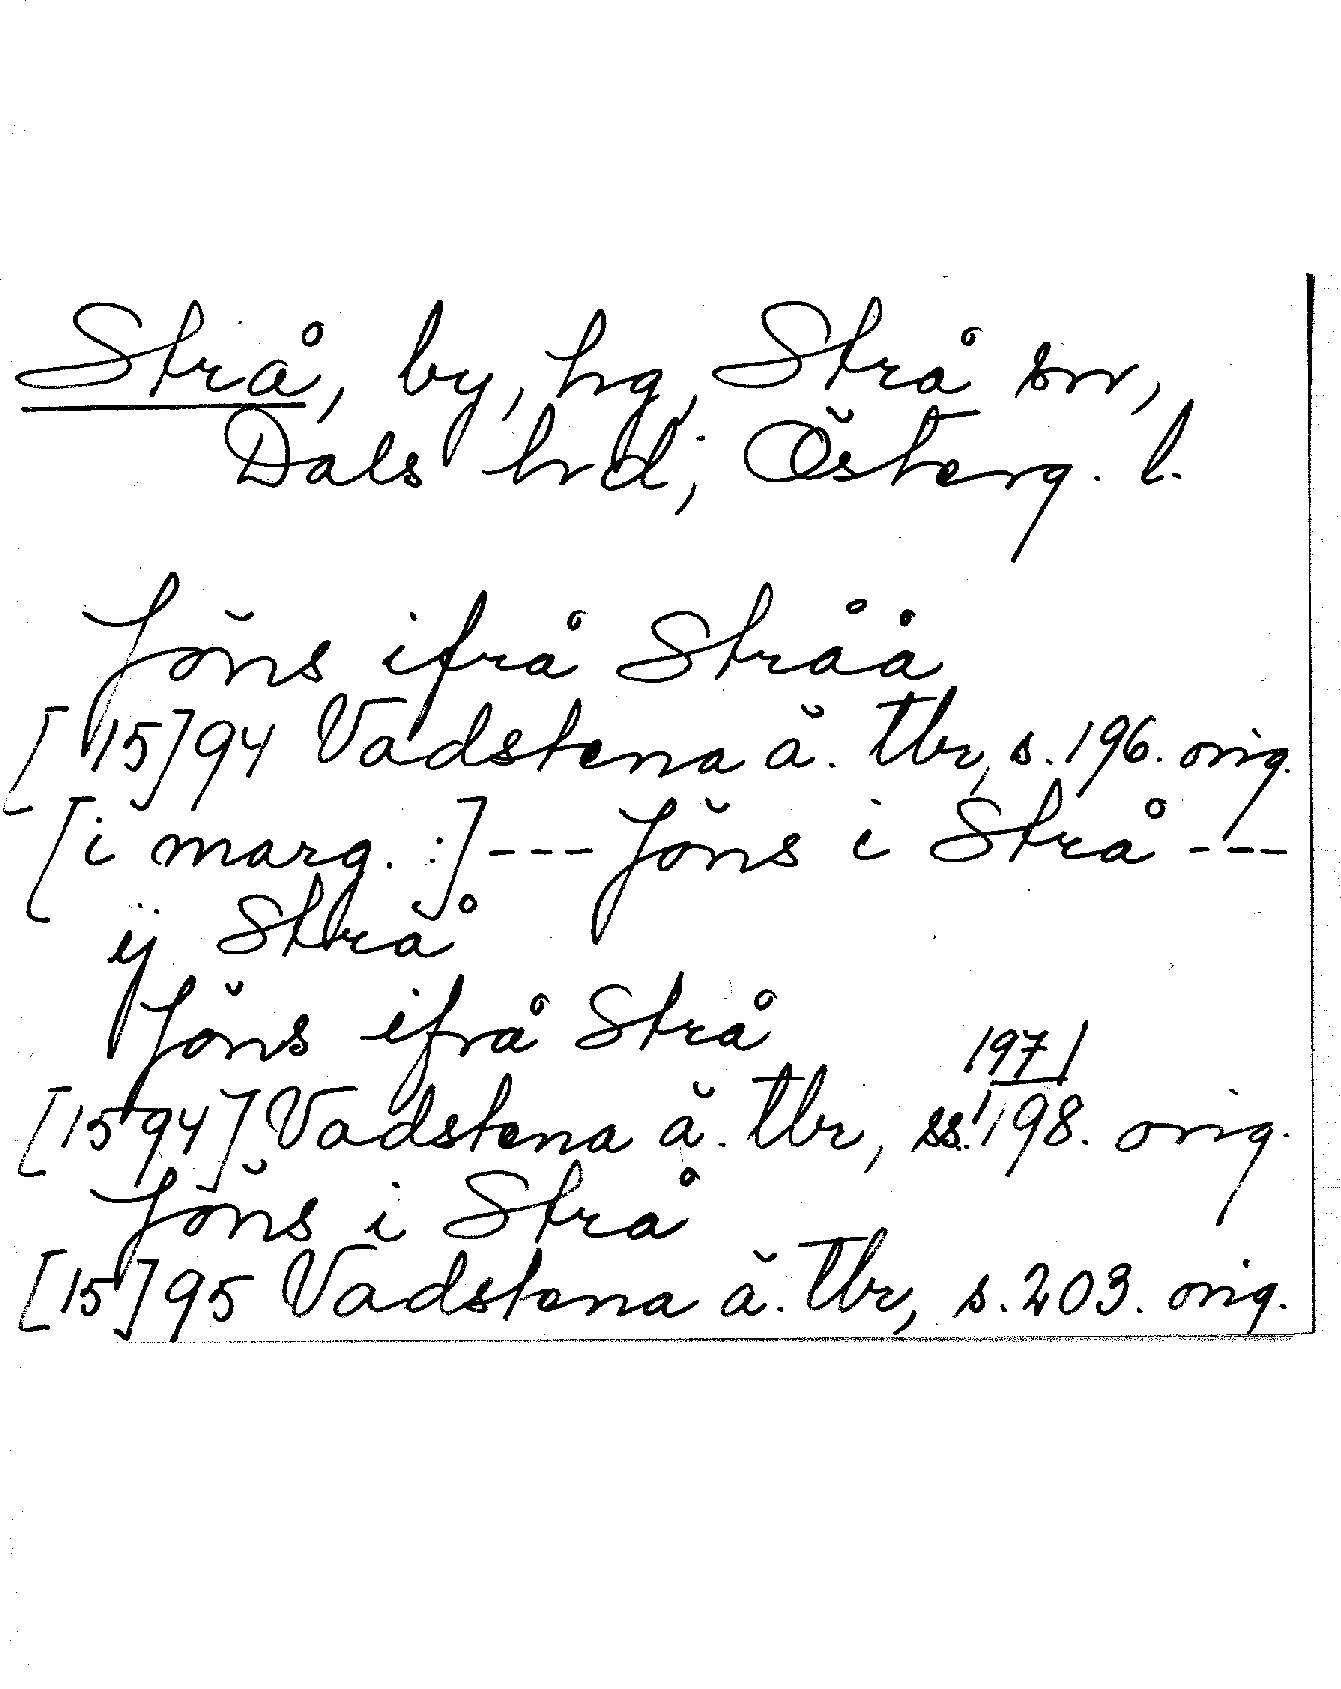 Strå, by, hg, Strå sn,
Dals hd, Österg. l.
Jöns ifrå Stråå
[15]94 Vadstena ä. tbr, s. 196. orig.
[i marg. :] --- Jöns i Strå ---
ÿ Strå
Jöns ifrå Strå
197/
[1594] Vadstena ä. tbr, ss. 198. orig.
Jöns i Strå
[15]95 Vadstena ä. tbr, s. 203. orig.